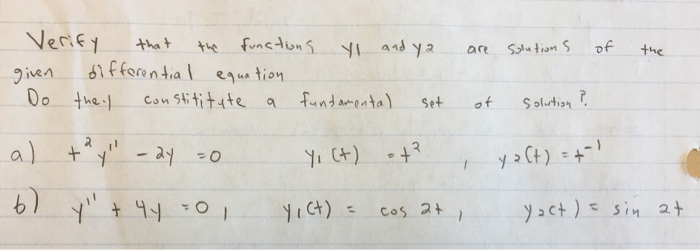 Verify that the functions y1 and y2 are solutions of the
given differential equation
Do they constititute a fundamental set of solution?
a) t²y'' - 2y = 0 y₁(t) = t² , y₂(t) = t⁻¹
b) y'' + 4y = 0, y₁(t) = cos 2t, y₂(t) = sin 2t